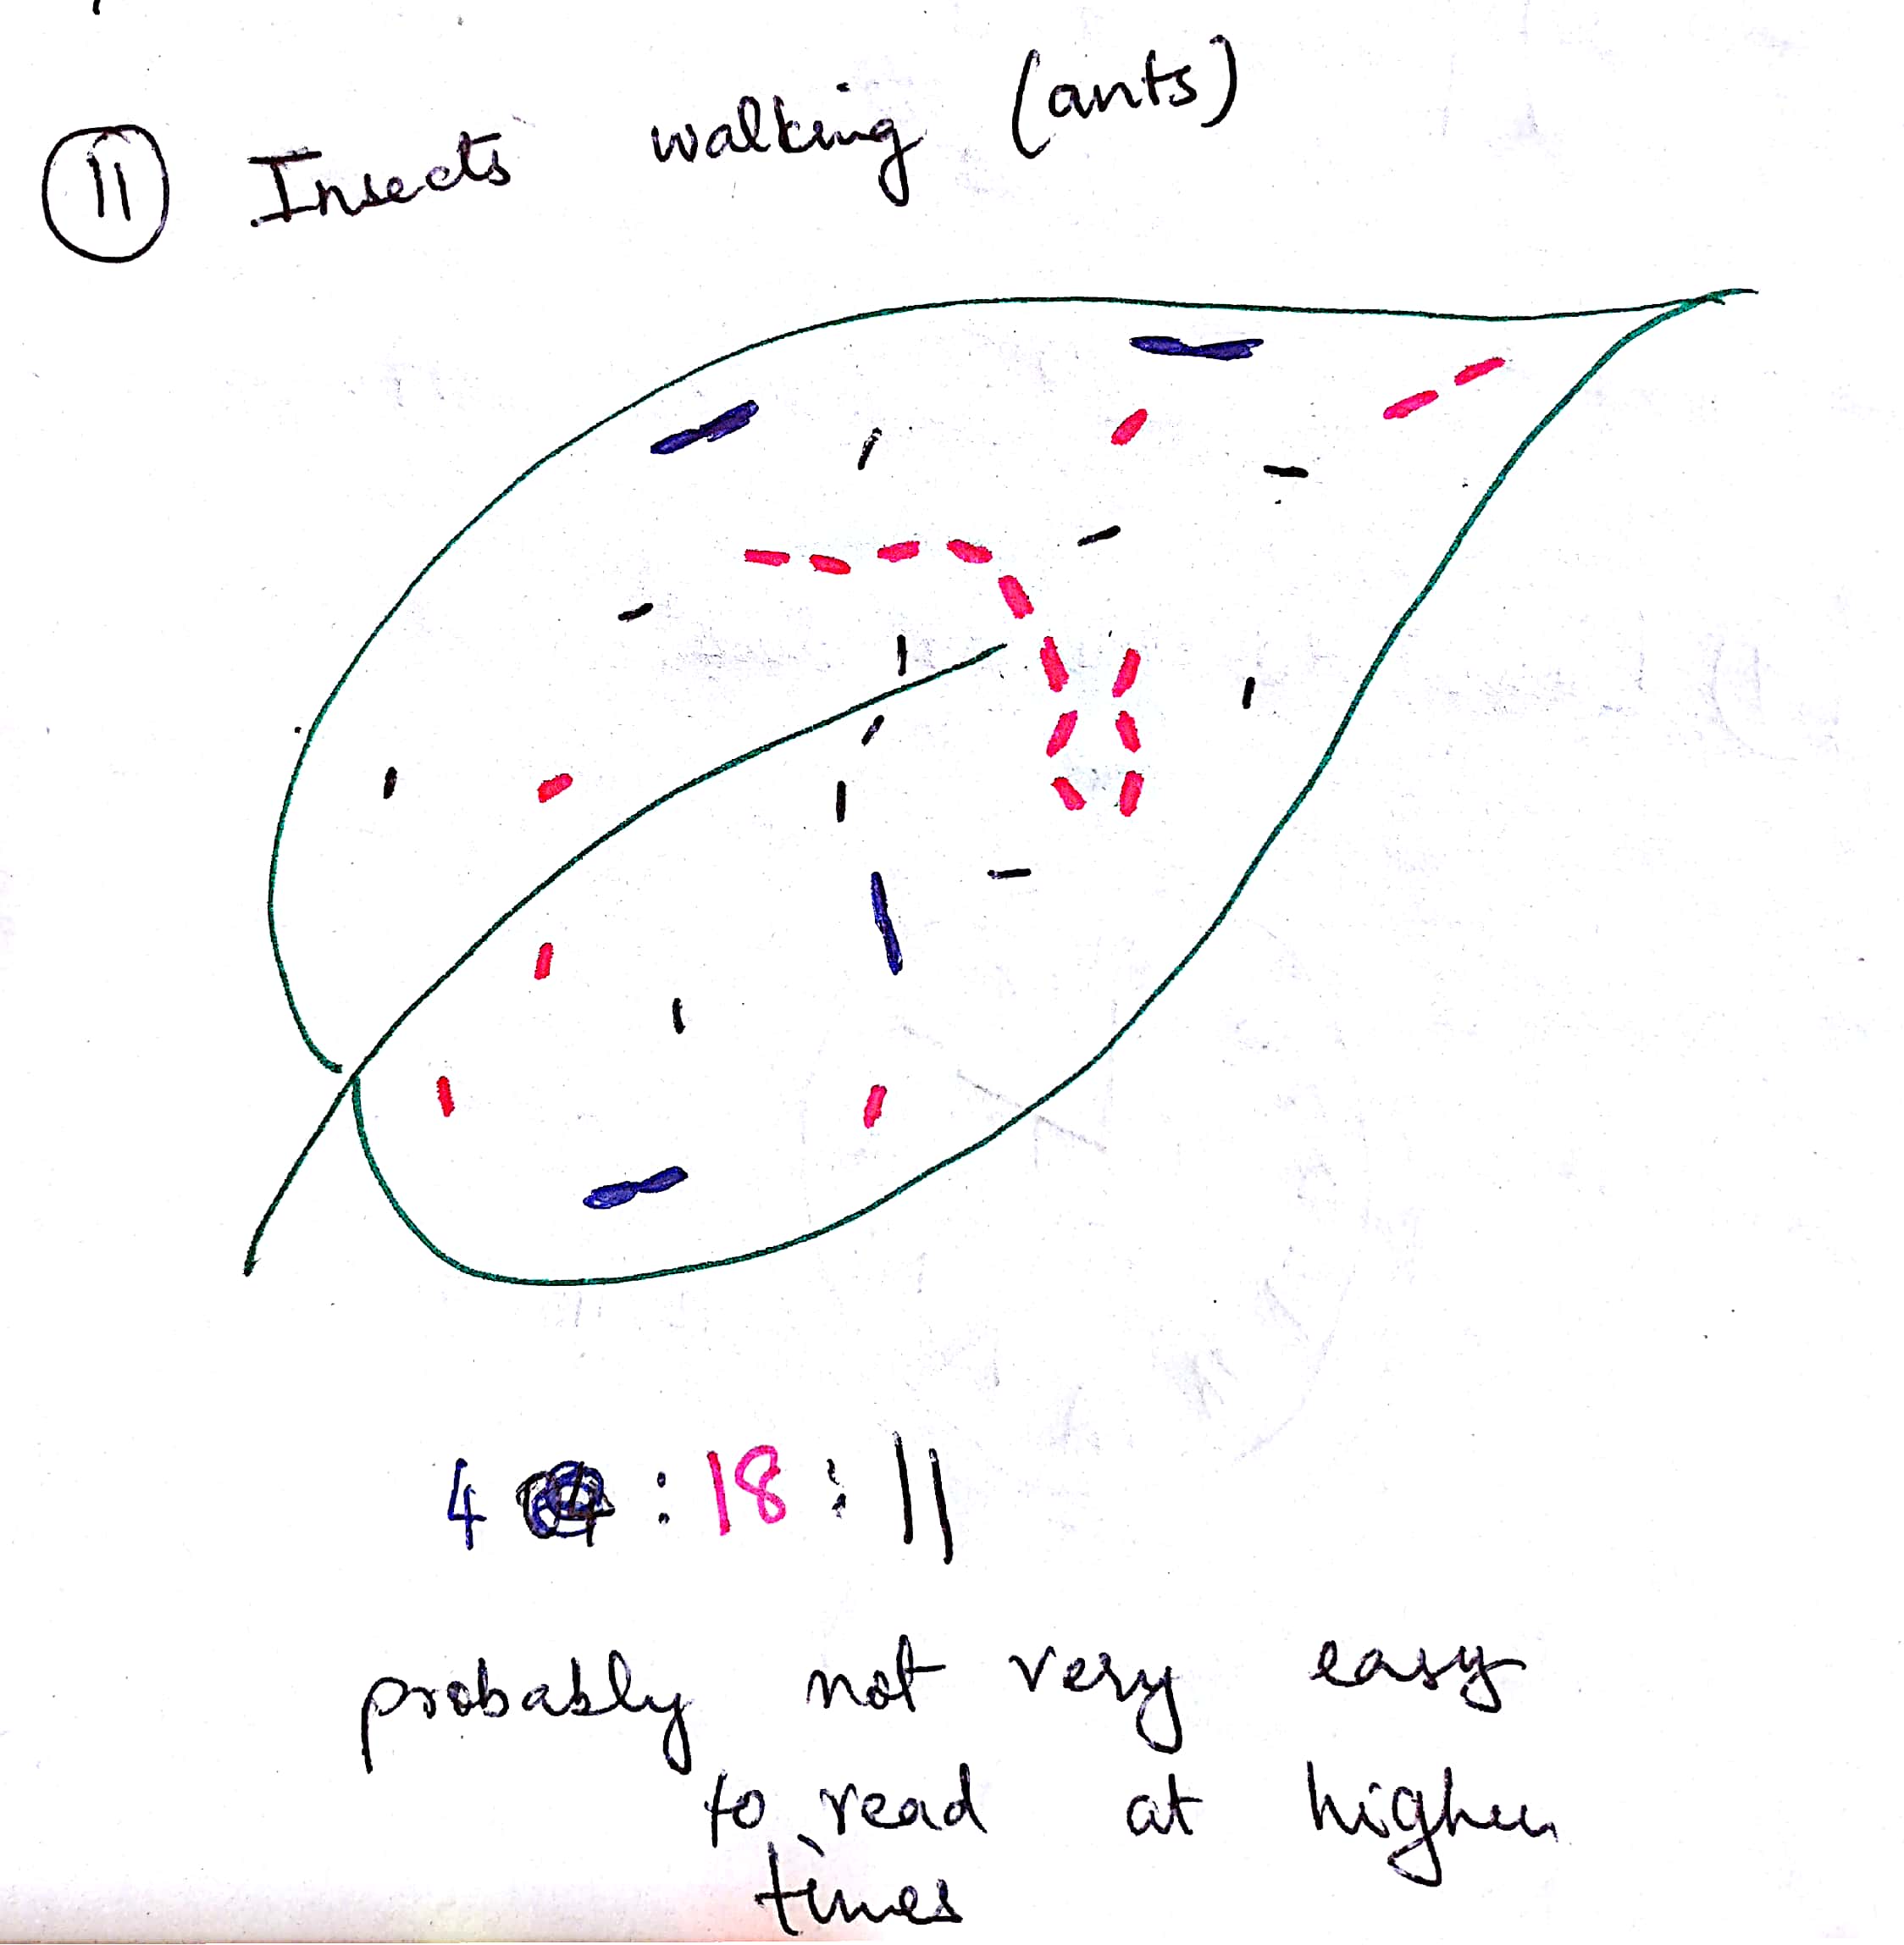 11 Insects walking (ants)
4 : 18 : 11
probably not very easy
to read at higher
times